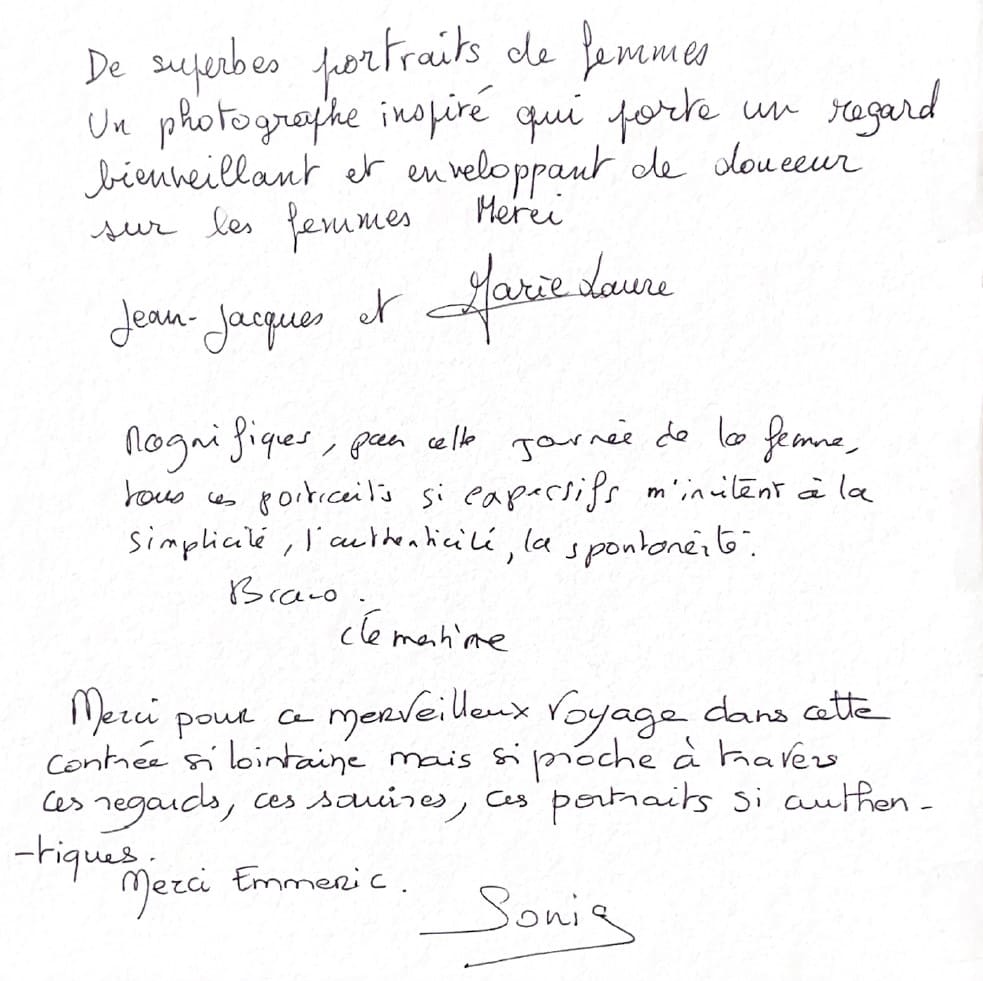 De superbes portraits de femmes
Un photographe inspiré qui porte un regard
bienveillant et enveloppant de douceur
sur les femmes Merci
Jean-Jacques et Marie Laure
Magnifiques, par cette journée de la femme,
tous ces portraits si expressifs m'invitent à la
simplicité, l'authenticité, la spontanéité.
Bravo.
Clémentine
Merci pour ce merveilleux voyage dans cette
contrée si lointaine mais si proche à travers
ces regards, ces sourires, ces portraits si authen-
-tiques.
Merci Emmeric.
Sonia